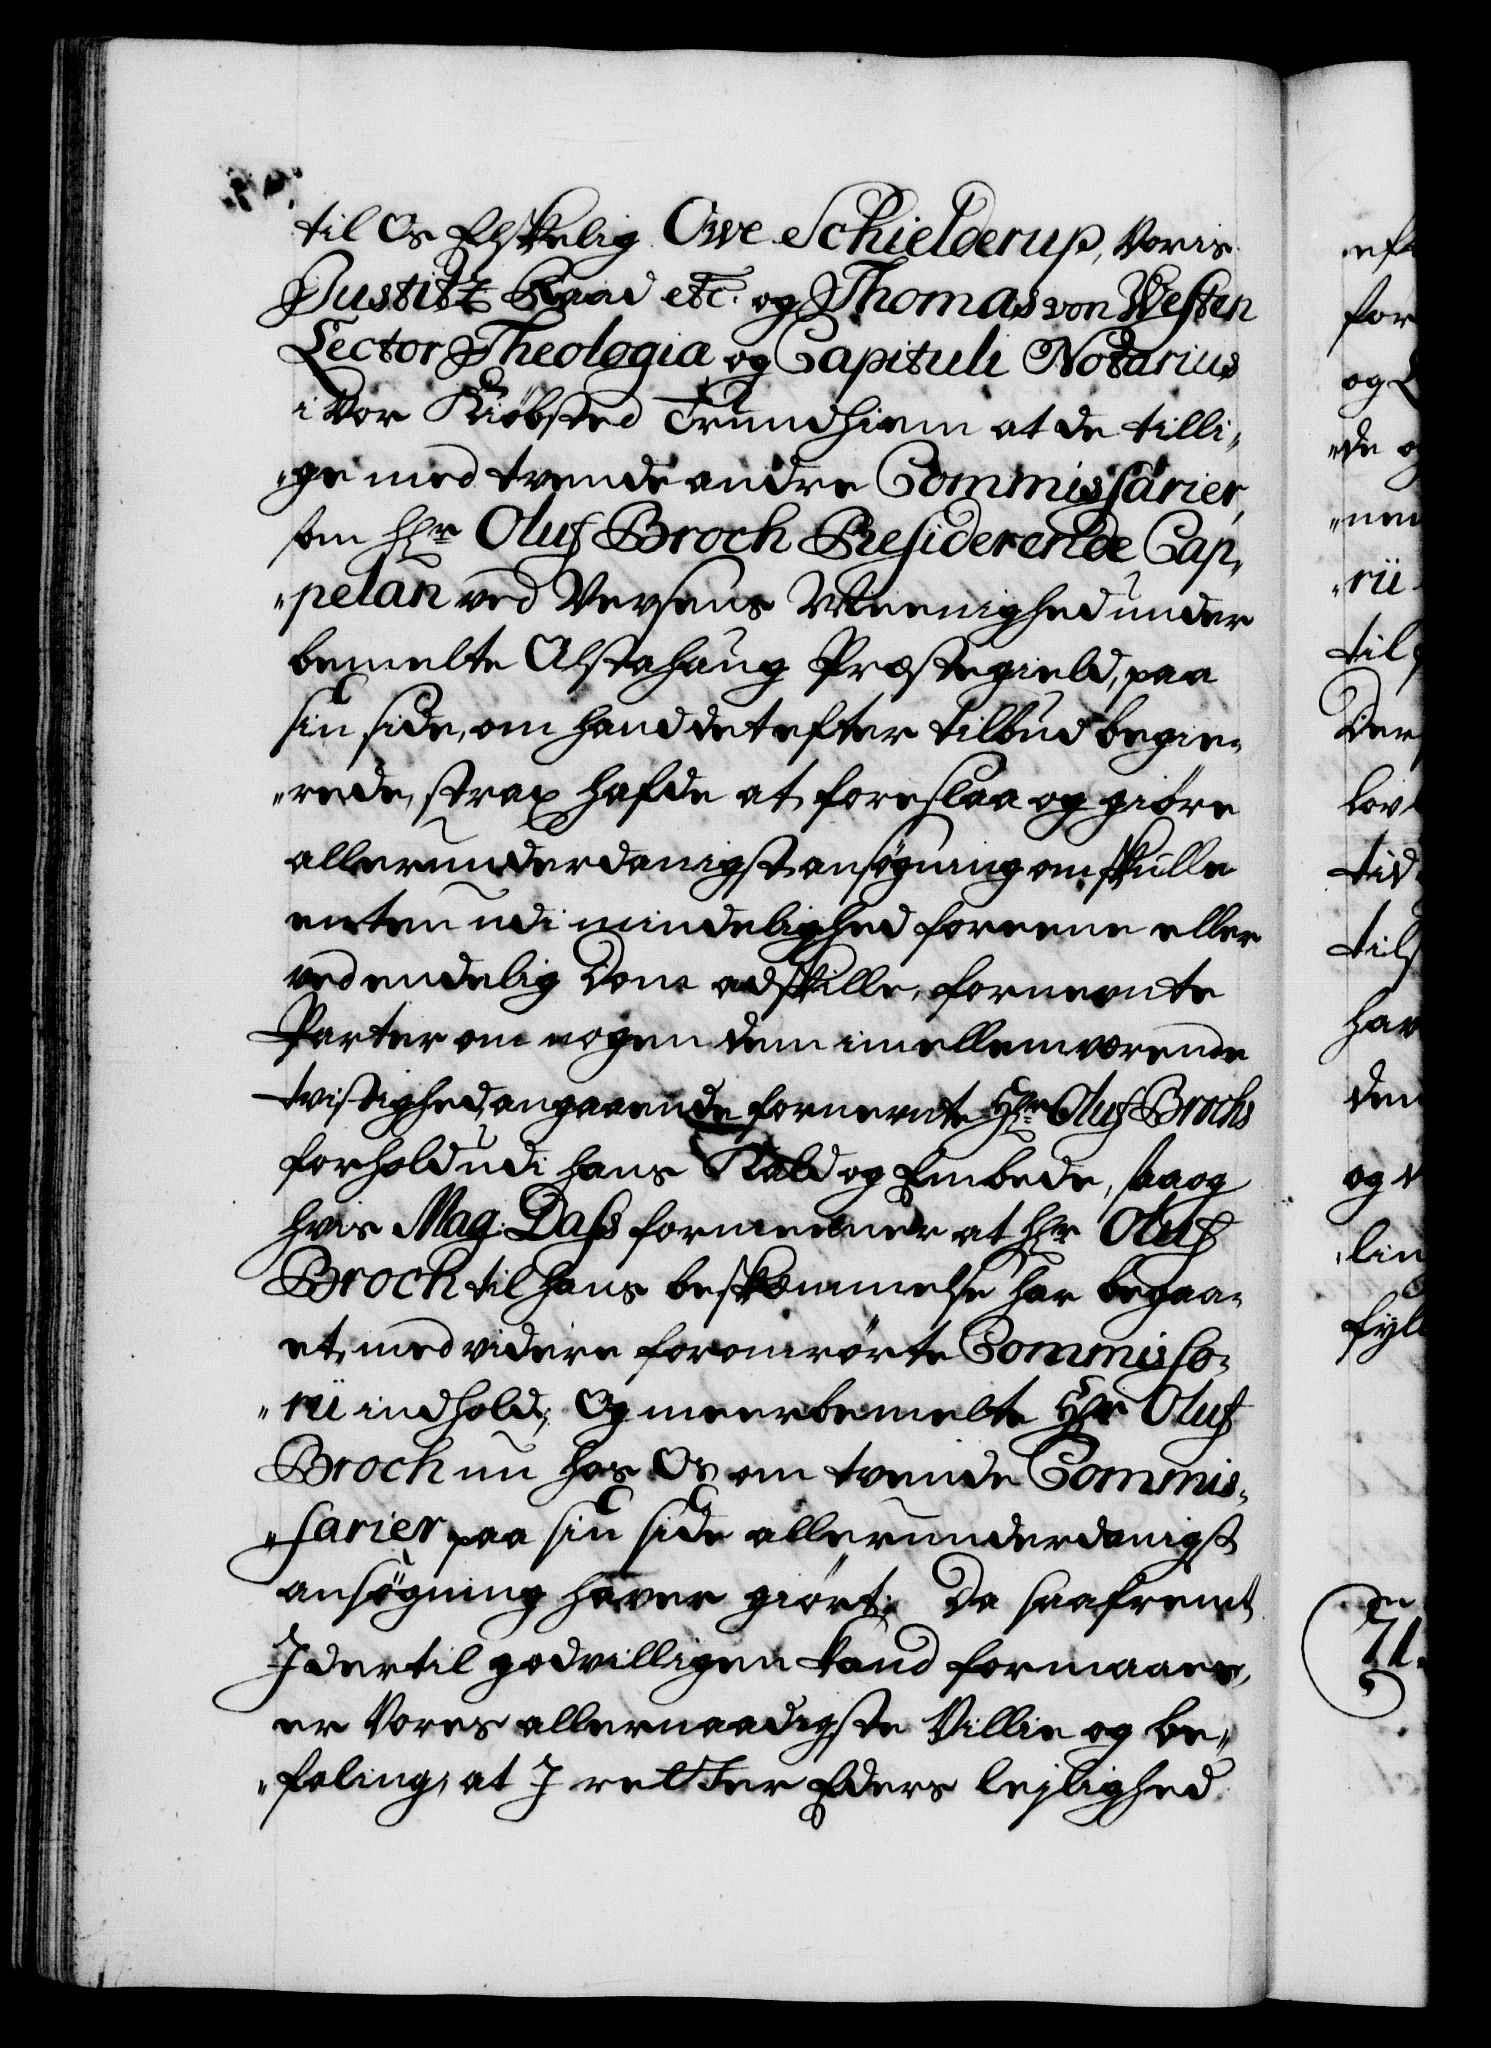 til Os Elskelig Owe Schielderup, Voris
Justitz Raad etc. og Thomas von Westen
Lector Theologia og Capituli Notarius
i Vor Kiøbsted Trundhiem at de tilli„
„ge med tvende andre Commissarier,
som Hr Oluf Broch Residerende Cap„
„pelan ved Vevsens Meenighed under
bemelte Alstahaug Præstegield, paa
sin side, om hand det efter tilbud begie„
„rede, strax hafde at foreslaa og giöre
allerunderdanigst ansøgning om skulle
enten udi mindelighed foreene eller
ved endelig Dom adskille, fornevnte
Parter om nogen dem imellem værende
tvistighed, angaaende fornevnte Hr Oluf Brochs
forhold udi hans Kald og Embede, saa og
hvis Mag: Dass formeener at Hr Oluf
Broch til hans beskæmmelse har begaa„
et, med videre foromrörte Commisso„
„rii indhold; Og meerbemelte Hr Oluf
Broch nu hos Os om tvende Commis„
„sarier paa sin side allerunderdanigst
ansögning haver giört; Da saafremt
I dertil godvilligen kand formaaes,
er Vores allernaadigste Villie og be„
„faling, at I retter Eders lejlighed